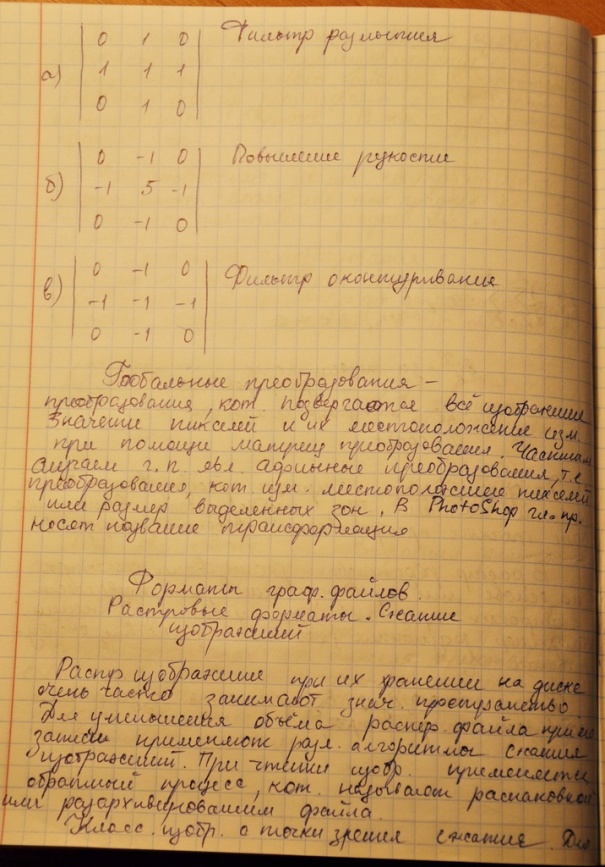 а) | 0 1 0 | Фильтр размытия
| 1 1 1 |
| 0 1 0 |
б) | 0 -1 0 | Повышение резкости
| -1 5 -1 |
| 0 -1 0 |
в) | 0 -1 0 | Фильтр оконтуривания
| -1 -1 -1 |
| 0 -1 0 |
Глобальные преобразования –
преобразования, кот. подвергается всё изображение
Значение пикселей и их местоположение изм.
при помощи матриц преобразования. Частным
случаем г.п. явл. афинные преобразования, т.е
преобразования, кот. изм. местоположение пикселей
или размер выделенных зон. В PhotoShop гл. пр.
носят название трансформация
Форматы граф. файлов.
Растровые форматы. Сжатие
изображений
Растр изображение при их хранении на диске
очень часто занимают знач. пространство.
Для уменьшения объёма растр. файла при его
записи применяют разл. алгоритмы сжатия
изображений. При чтении изобр. применяется
обратный процесс, кот. называют распаковкой
или разархивированием файла.
Класс. изобр. с точки зрения сжатия. Для